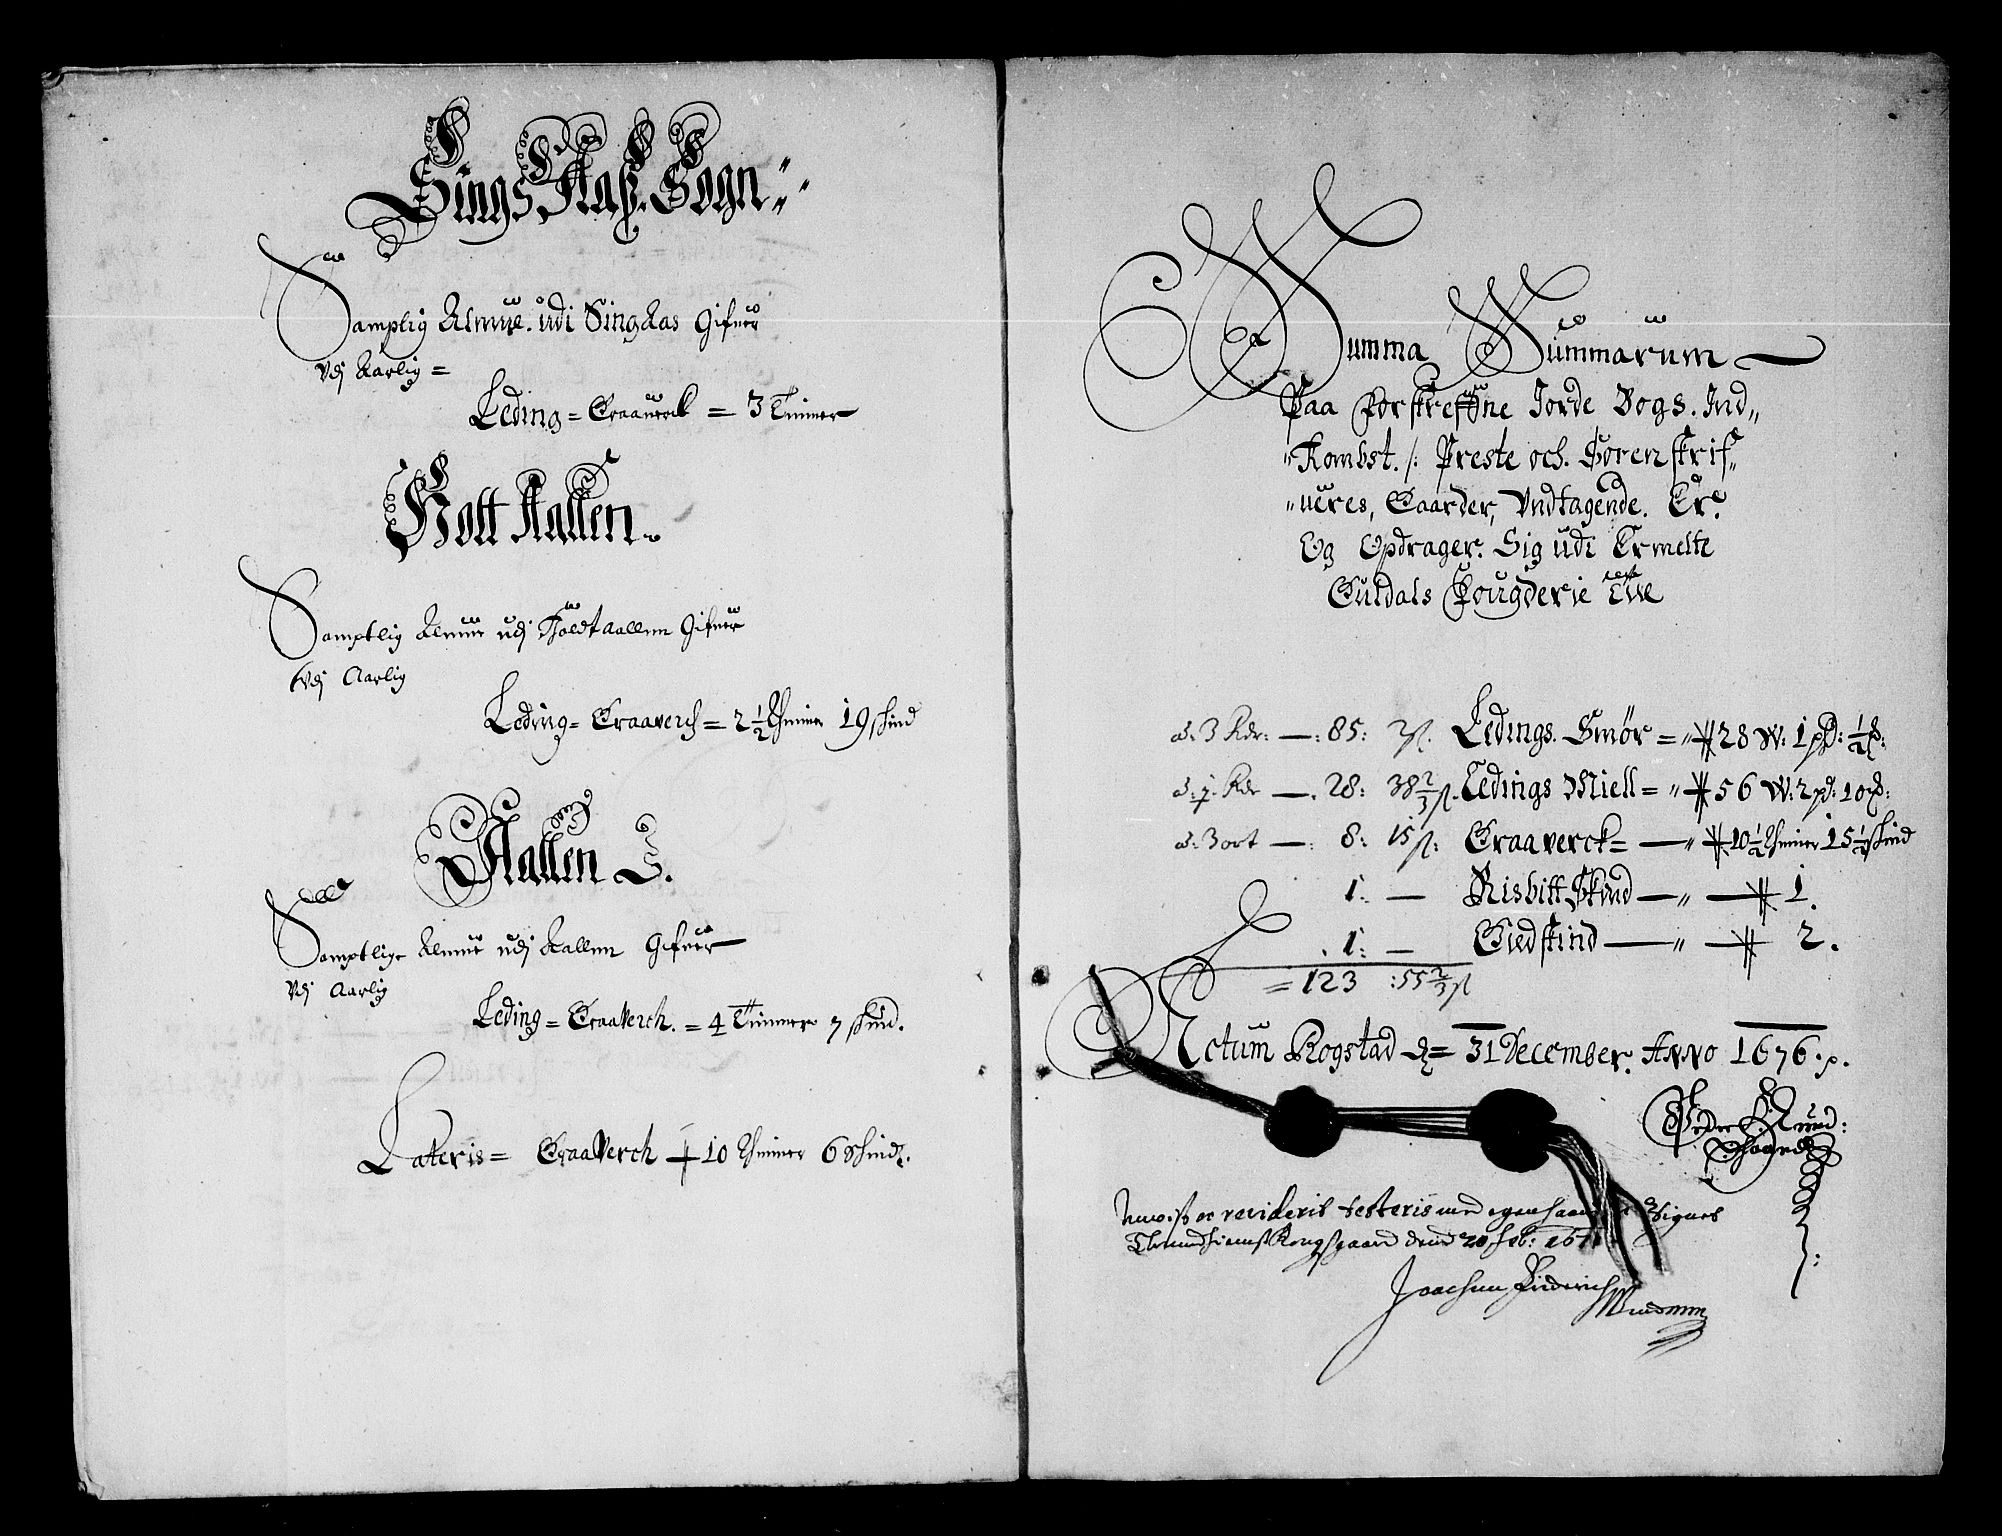 Sings Aaß. Sogn
Samplig Almue. udi Singsaas Gifuer
Vdj Aarlig =
Leding = Graaverck = 3 Timer
Holt Aallen.
Samptlig Almue udj Holdtaallen Gifuer
Vdj Aarlig
Leding = Graaverch = 2 1/2 Thimer 19 skind
Aallen S.
Samptlige Almue udj Aallen Gifuer
Vdj Aarlig
Leding = Graaverch. = 4 Timmer 7 skind.
Lateris = Graaverch 10 Thimer 6 Skind.
Summa Summarum
Paa Forskreffne Jorde Bogs. Ind„
„Kombst. /: Preste och. Sorenskrif„
„ueres, Gaarder, Vndtagende. Er.
Og Opdrager. Sig udi Ermelte
Guldals Fougderie
a. 3 Rdr: —: 85: 3ß. Ledings. Smør = „ 28 W: 1 pd: 1/2 :
a: Rdr —. 28: 38 2/3 ß. Ledings Miell = „ 56 W: 2 pd: 10 :
a: 3 ort —: 8: 15 ß: Graaverck = — „ 10 1/2 Thimer 15 1/2 skind
1: — Skind — „ — 1.
. 1: — Giedskind — „ — 2.
= 123 : 55 2/3 ß
Actum Rogstad d = 31 December. Anno 1676.
Peder

reviderit testeris med egen haand
Thrundhiems Kongsgaard denn 20 Feb: 167
Joachim Friderich